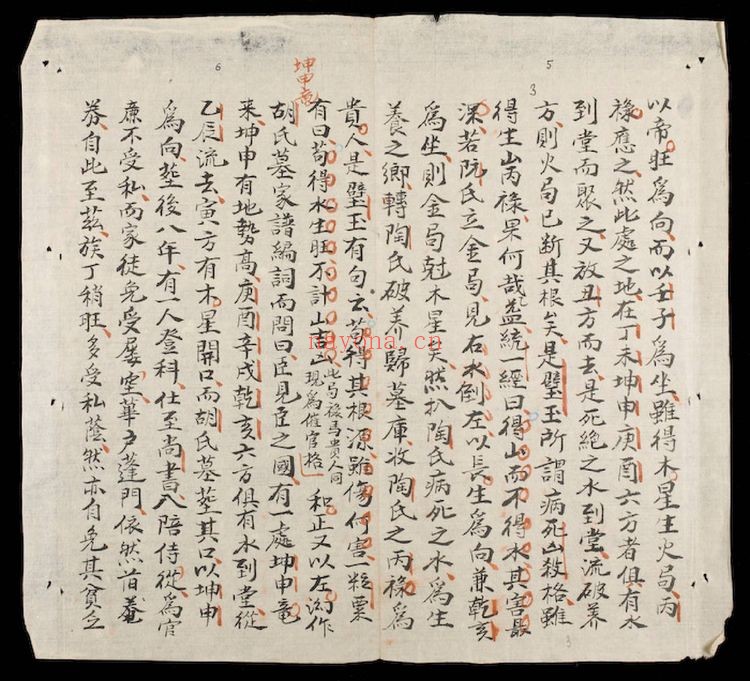 5
3
以帝旺爲向而以壬子爲坐雖得木星生火局丙
祿應之然此處之地在丁未坤申庚酉六方者俱有水
到堂而聚之又放丑方而去是死絕之水到堂流破養
方則火局已斷其根矣是璧玉所謂病死山殺格雖
得生山丙祿果何哉蓋統一經曰得山而不得水其害最
深若阮氏立金局見右水倒左以長生爲向兼乾亥
爲坐則金局尅木星矣然扒陶氏病死之水爲生
養之鄉轉陶氏破养歸墓庫收陶氏之丙祿爲
6
坤申竜
貴人是璧玉有句云苟得其根源雖傷何害一粒粟
有曰苟得水生旺不計山吉凶此局祿馬貴人同現爲催官格和正又以左溝作
胡氏墓家譜編詞而問曰臣見臣之國有一處坤申竜
來坤申有地勢高庚酉辛戌乾亥六方俱有水到堂從
乙辰流去寅方有木星開口而胡氏墓塟其口以坤申
爲向塟後八年有一人登科仕至尚書入陪侍從爲官
廉不受私而家徒免受屡空華户蓬門依然昔菴
券自此至茲族丁稍旺多受私蔭然亦自免其貧仝
3
nayona.cn